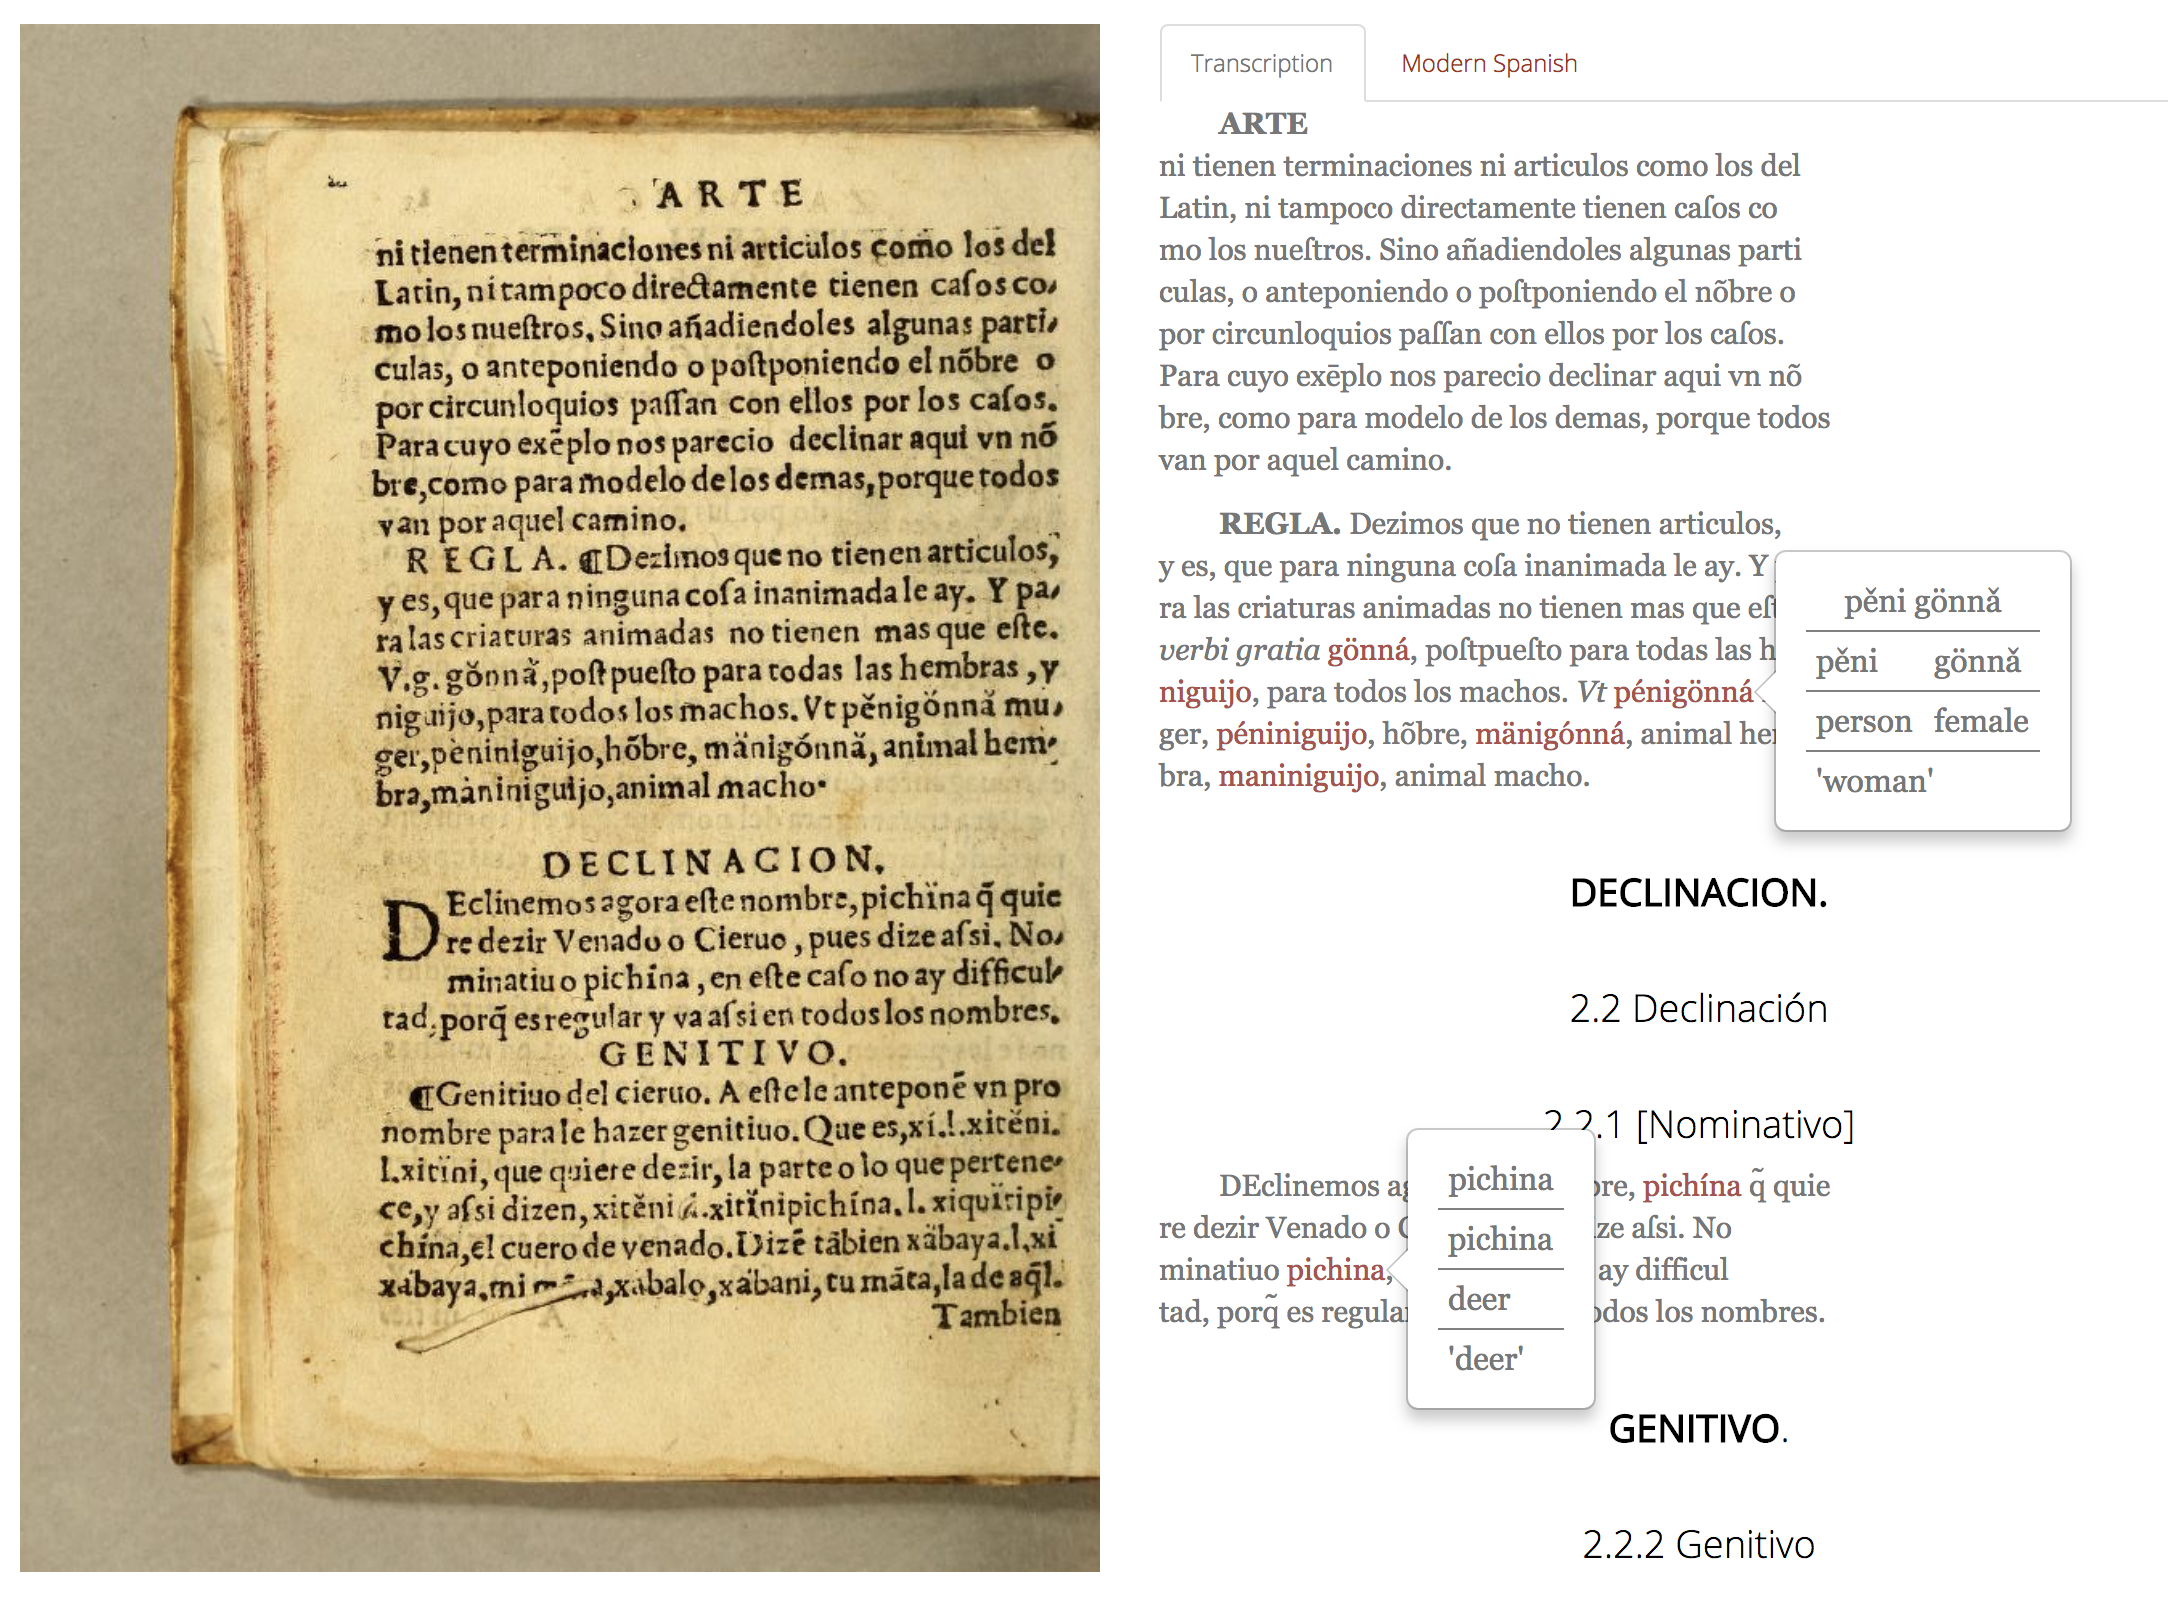 ARTE
ni tienen terminaciones ni articulos como los del
Latin, ni tampoco directamente tienen caſos co,
mo los nueſtros. Sino añadiendoles algunas parti,
culas, o anteponiendo o poſtponiendo el nõbre o
por circunloquios paſſan con ellos por los caſos.
Para cuyo exēplo nos parecio declinar aqui vn nõ
bre, como para modelo de los demas, porque todos
van por aquel camino.
REGLA. ¶Dezimos que no tienen articulos,
y es, que para ninguna coſa inanimada le ay. Y pa,
ra las criaturas animadas no tienen mas que eſte.
V.g. gŏnnǎ, poſtpueſto para todas las hembras, y
niguijo, para todos los machos. Vt pěnigönnǎ mu,
ger, pèniniguijo, hõbre, mänigónnǎ, animal hem-
bra, màniniguijo, animal macho.
DECLINACION.
DEclinemos agora eſte nombre, pichïna q̃ quie
re dezir Venado o Cieruo, pues dize aſsi. No,
minatiuo pichína, en eſte caſo no ay difficul,
tad, porq̃ es regular y va aſsi en todos los nombres.
GENITIVO.
¶Genitiuo del cieruo. A eſte le anteponẽ vn pro
nombre para le hazer genitiuo. Que es, xí.l.xitěni.
l.xitïni, que quiere dezir, la parte o lo que pertene-
ce, y aſsi dizen, xitěni .xitǐnipichína. l. xiquitipi-
chína, el cuero de venado. Dizẽ tãbien xäbaya.l.xi
xàbaya. mi xàbalo, xàbani, tu mãta, la de aq̃l.
Tambien
Transcription
Modern Spanish
ARTE
ni tienen terminaciones ni articulos como los del
Latin, ni tampoco directamente tienen caſos co
mo los nueſtros. Sino añadiendoles algunas parti
culas, o anteponiendo o poſtponiendo el nõbre o
por circunloquios paſſan con ellos por los caſos.
Para cuyo exēplo nos parecio declinar aqui vn nõ
bre, como para modelo de los demas, porque todos
van por aquel camino.
REGLA. Dezimos que no tienen articulos,
y es, que para ninguna coſa inanimada le ay. Y
ra las criaturas animadas no tienen mas que eſt
verbi gratia gönná, poſtpueſto para todas las h
niguijo, para todos los machos. Vt pénigönná
ger, péniniguijo, hõbre, mänigónná, animal hen
bra, maniniguijo, animal macho.
pěni gönnǎ
pěni gönnǎ
person female
'woman'
DECLINACION.
2.2 Declinación
2.2.1 [Nominativo]
DEclinemos ag bre, pichína q̃ quie
re dezir Venado o C ze aſsi. No
minatiuo pichina, ay difficul
tad, porq̃ es regular odos los nombres.
pichina
pichina
deer
'deer'
GENITIVO.
2.2.2 Genitivo